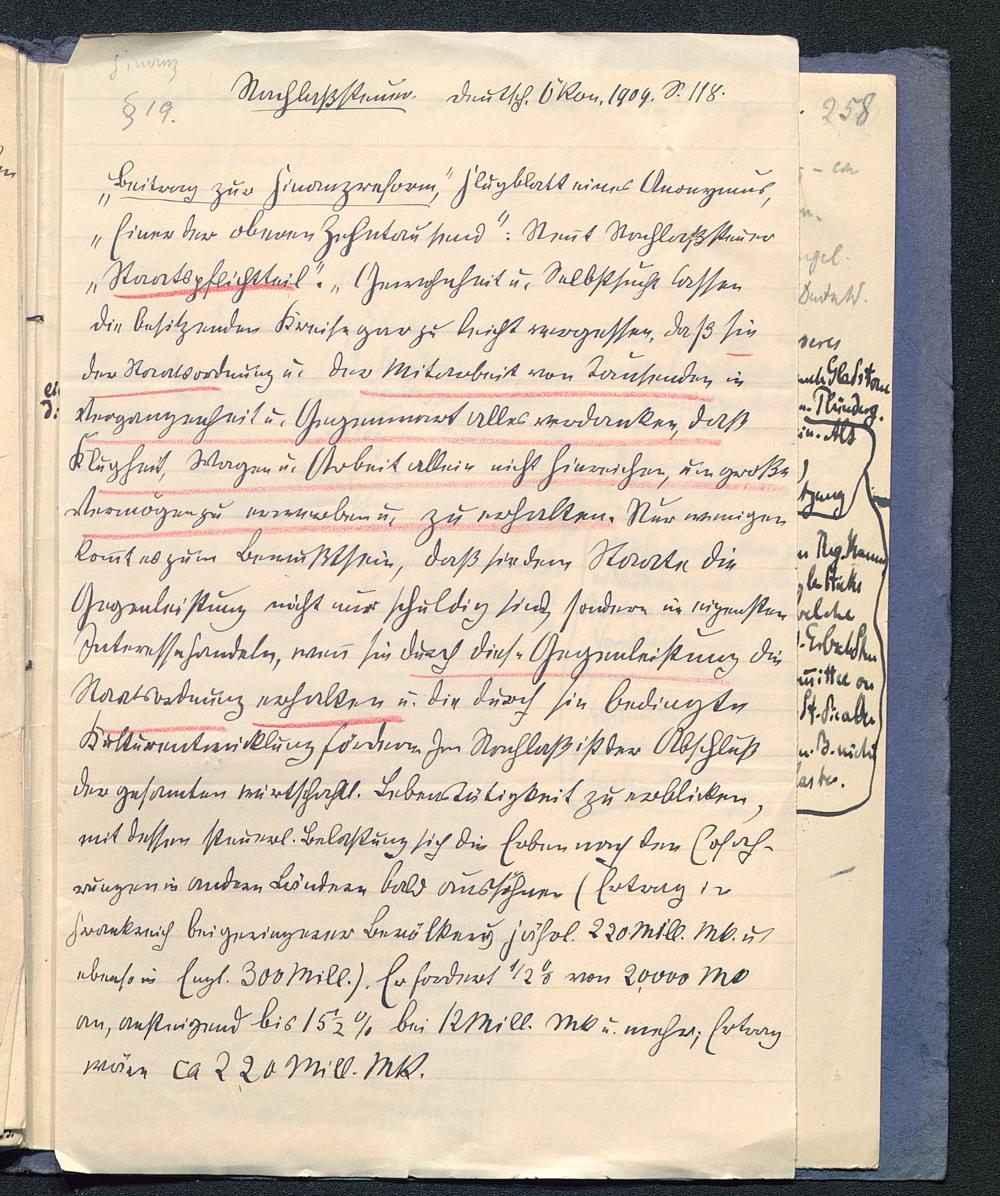 Finanz
§ 19.
Nachlaßsteuer. Deutsch. Ökon. 1909. S. 118.
„Beitrag zur Finanzreform," Flugblatt eines Anonymus,
„Einer der oberen Zehntausend": Nennt Nachlaßsteuer
„Staatspflichtteil". „Gewohnheit u. Selbstsucht lassen
die besitzenden Kreise gar zu leicht vergessen, daß sie
der Staatsordnung u. der Mitarbeit von Tausenden in
Vergangenheit u. Gegenwart alles verdanken, daß
Klugheit, Wagen u. Arbeit allein nicht hinreichen, um große
Vermögen zu erwerben u. zu erhalten. Nur wenigen
kom̅t es zum Bewußtsein, daß sie dem Staate die
Gegenleistung nicht nur schuldig sind, sondern im eigensten
Interesse handeln, wen̅ sie durch diese Gegenleistung die
Staatsordnung erhalten u. die durch sie bedingte
Kulturentwicklung fördern. Im Nachlaß ist der Abschluß
der gesamten wirtschaftl. Lebenstätigkeit zu erblicken,
mit dessen steuerl. Belastung sich die Erben nach den Erfah-
rungen in andern Ländern bald aussöhnen (Ertrag in
Frankreich bei geringerer Bevölkerg jährl. 220 Mill. Mk. u.
ebenso in Engl. 300 Mill.). Er fordert 1/2 % von 20000 Mk
an, ansteigend bis 15 1/2 % bei 12 Mill. Mk u. mehr; Ertrag
wäre ca 220 Mill. Mk.
258